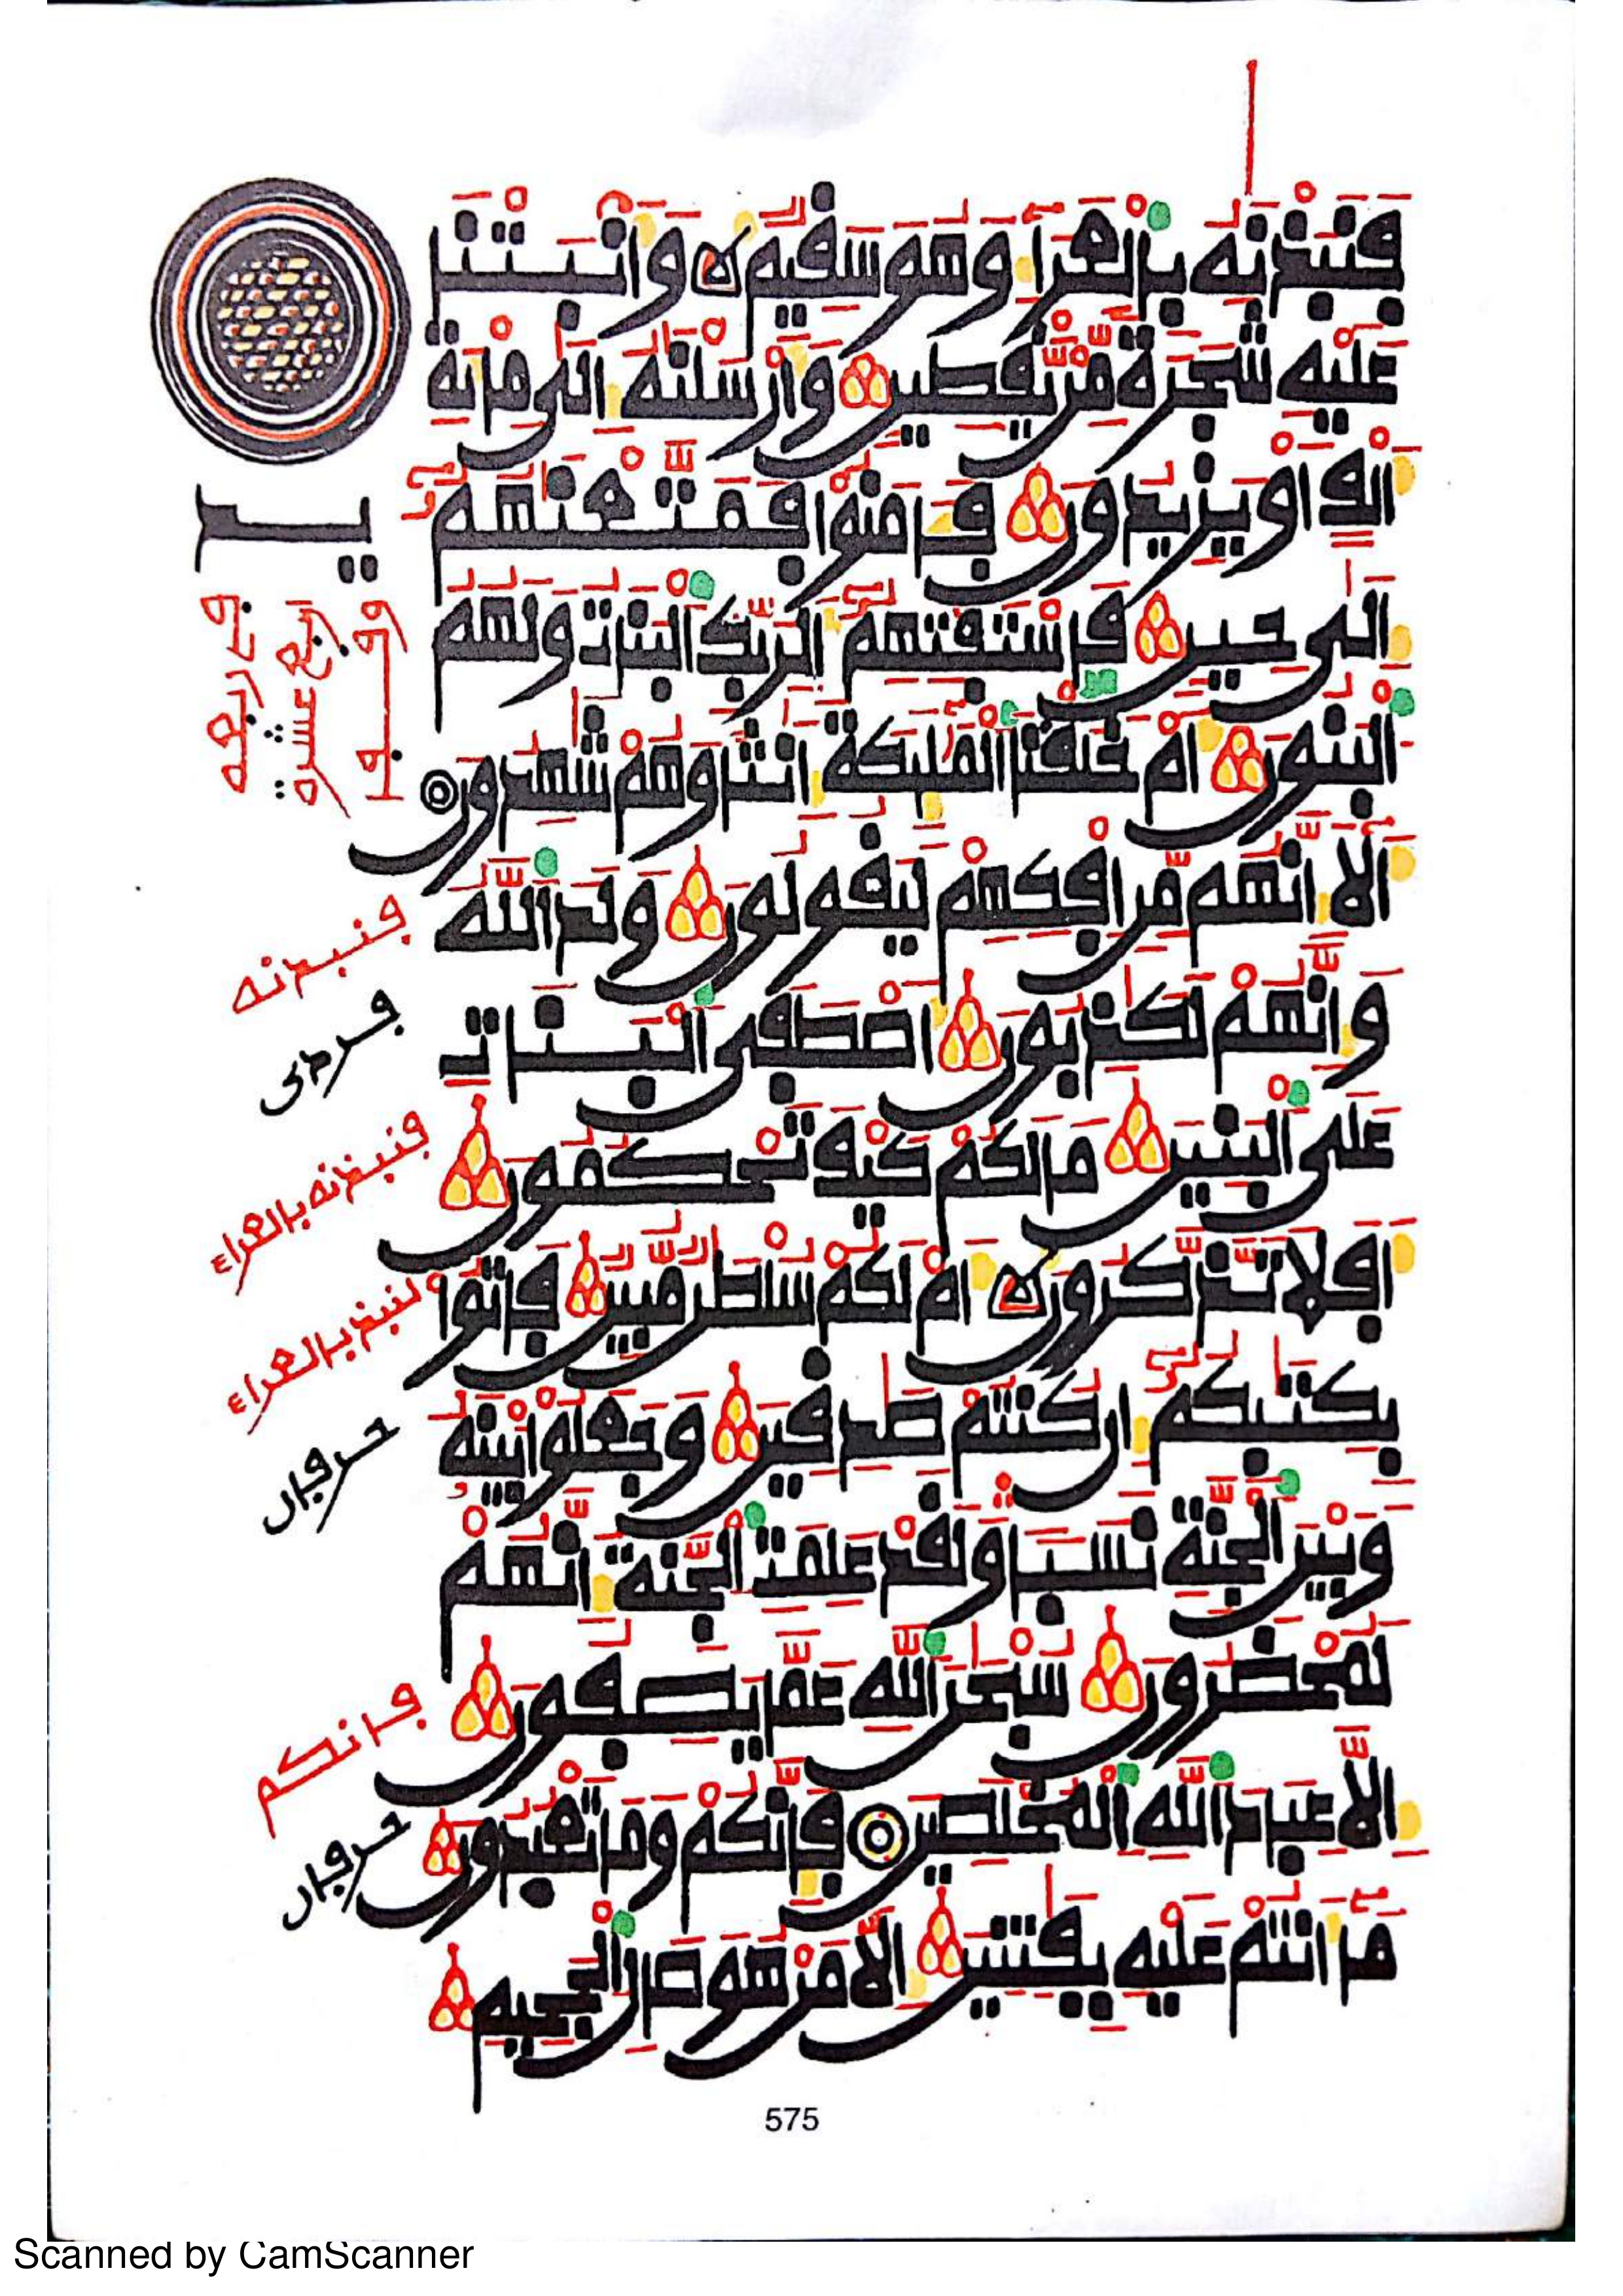 فَنَبَذْنَٰهُ بِالْعَرَآءِ وَهُوَ سَقِيمٌ وَأَنۢبَتْنَا
عَلَيْهِ شَجَرَةً مِّنْ يَّقْطِينٍ وَأَرْسَلْنَٰهُ إِلَىٰ مِا۟ئَةِ
أَلْفٍ أَوْ يَزِيدُونَ فَـَٔامَنُوا فَمَتَّعْنَٰهُمُ
إِلَىٰ حِينٍ فَاسْتَفْتِهِمُ أَلِرَبِّكَ الْبَنَاتُ وَلَهُمُ
الْبَنُونَ أَمْ خَلَقْنَا الْمَلَٰٓئِكَةَ إِنَٰثًا وَهُمْ شَٰهِدُونَ
أَلَآ إِنَّهُم مِّنِ افْكِهِمْ لَيَقُولُونَ وَلَدَ اللَّهُ
وَإِنَّهُمْ لَكَٰذِبُونَ أَصْطَفَى الْبَنَاتِ
عَلَى الْبَنِينَ مَا لَكُمْ كَيْفَ تَحْكُمُونَ
أَفَلَا تَذَّكَّرُونَ أَمْ لَكُمْ سُلْطَٰنٌ مُّبِينٌ فَاتُوا
بِكِتَٰبِكُمُ إِن كُنتُمْ صَٰدِقِينَ وَجَعَلُوا بَيْنَهُ
وَبَيْنَ الْجِنَّةِ نَسَبًا وَلَقَدْ عَلِمَتِ الْجِنَّةُ إِنَّهُمْ
لَمُحْضَرُونَ سُبْحَٰنَ اللَّهِ عَمَّا يَصِفُونَ
إِلَّا عِبَادَ اللَّهِ الْمُخْلَصِينَ فَإِنَّكُمْ وَمَا تَعْبُدُونَ
مَآ أَنتُمْ عَلَيْهِ بِفَٰتِنِينَ إِلَّا مَنْ هُوَ صَالِ الْجَحِيمِ
فنبذنه
فنبذنه بالعراء
لنبذ بالعراء
حرفان
فإنكم
حرفان
575
Scanned by CamScanner